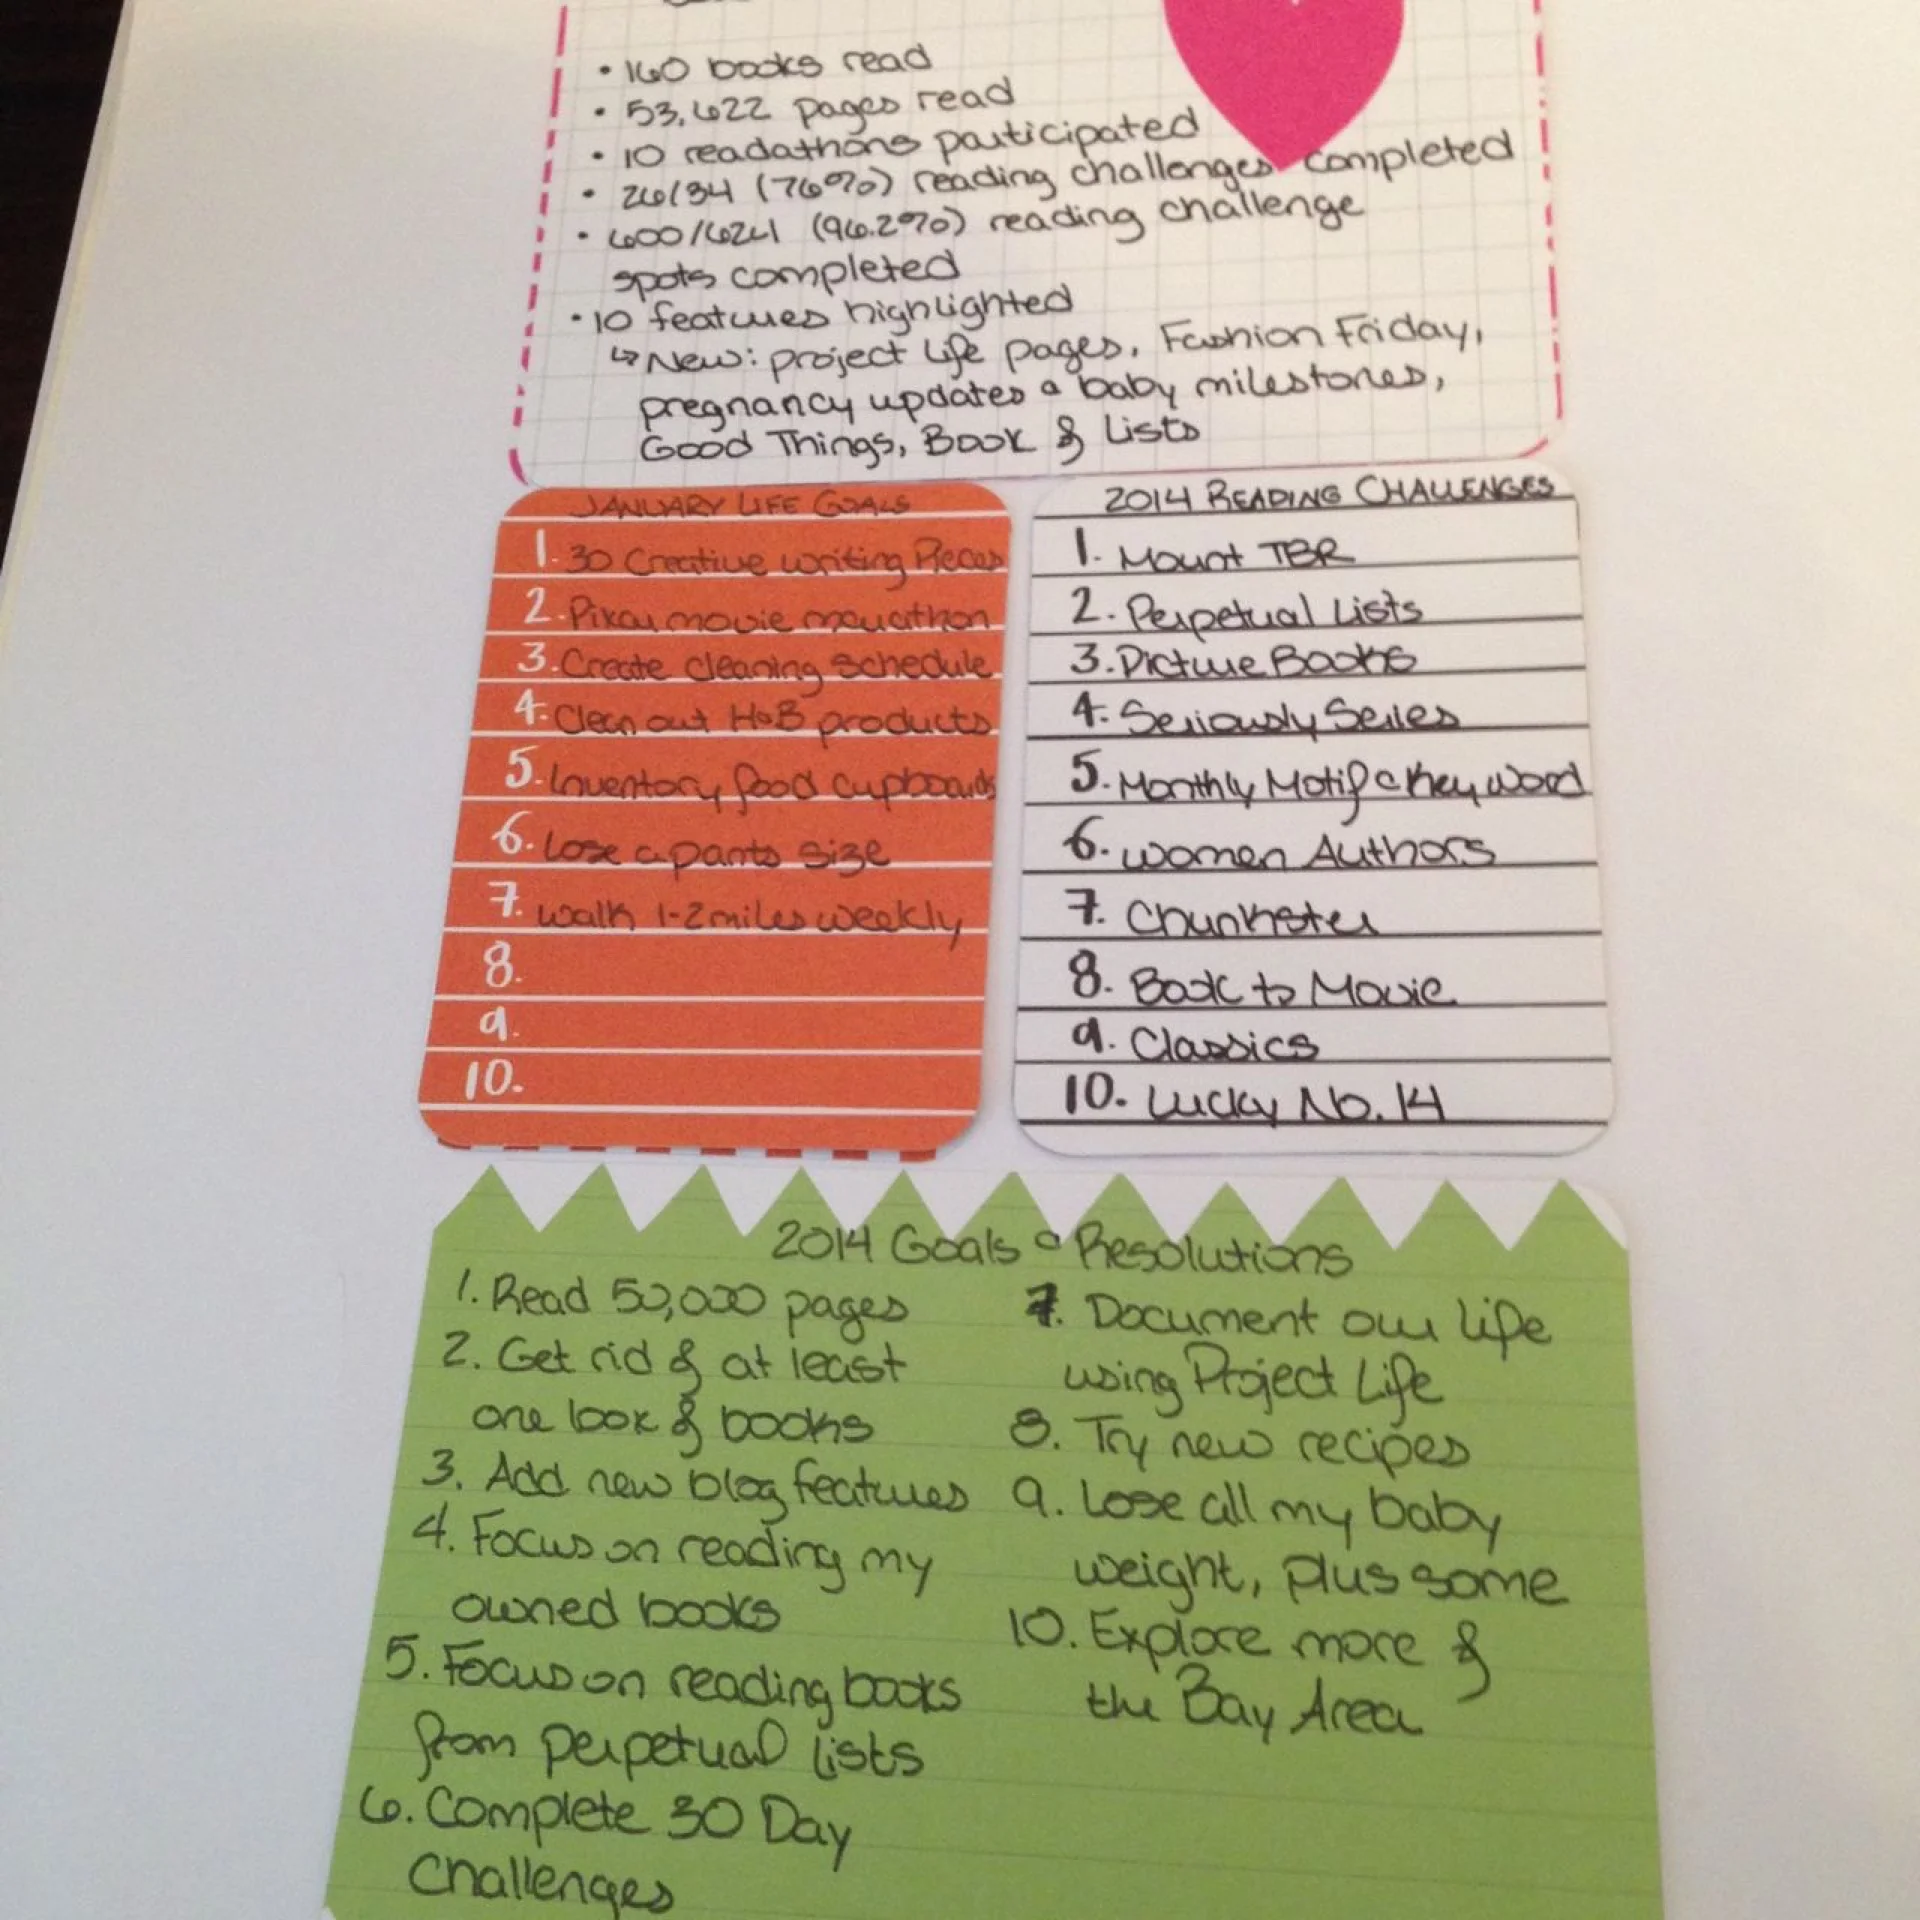 • 160 books read
• 53,622 pages read
• 10 readathons participated
• 26/34 (76%) reading challenges completed
• 600/624 (96.2%) reading challenge
spots completed
• 10 features highlighted
↳ New: project life pages, Fashion Friday,
pregnancy updates & baby milestones,
Good Things, Book of Lists
JANUARY LIFE GOALS
1. 30 Creative writing Pieces
2. Pixar movie marathon
3. Create cleaning schedule
4. Clean out H&B products
5. Inventory food cupboards
6. Lose a pants size
7. Walk 1-2 miles weekly
8.
9.
10.
2014 READING CHALLENGES
1. Mount TBR
2. Perpetual Lists
3. Picture Books
4. Seriously Series
5. Monthly Motif & Key Word
6. Women Authors
7. Chunkster
8. Book to Movie
9. Classics
10. Lucky No. 14
2014 Goals & Resolutions
1. Read 50,000 pages
2. Get rid of at least
one box of books
3. Add new blog features
4. Focus on reading my
owned books
5. Focus on reading books
from perpetual lists
6. Complete 30 Day
Challenges
7. Document our life
using Project Life
8. Try new recipes
9. Lose all my baby
weight, plus some
10. Explore more of
the Bay Area